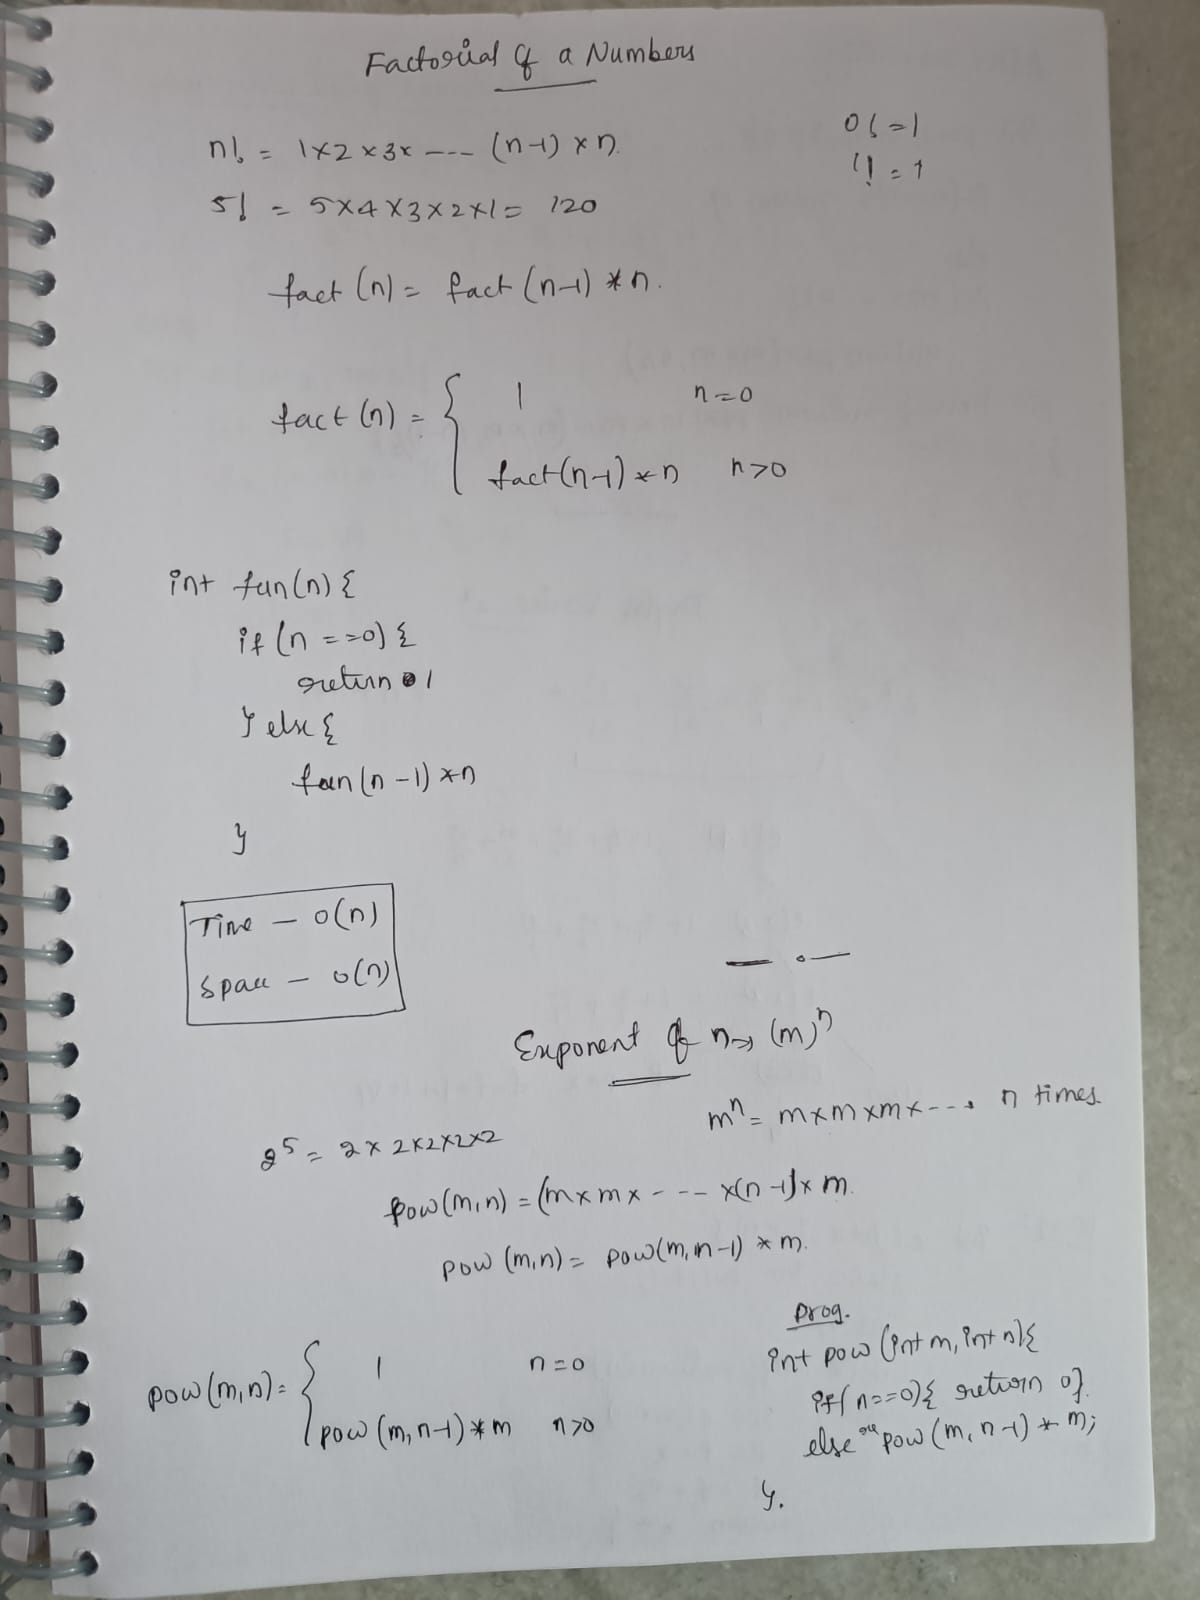 Factorial of a Numbers
n! = 1×2×3× ---- (n-1) × n.
0! = 1
1! = 1
5! = 5×4×3×2×1 = 120
fact (n) = fact (n-1) * n.
fact (n) = { 1 n=0
fact(n-1) * n n>0
int fun(n) {
if (n ==0) {
return 1
} else {
fun(n-1) *n
}
Time - O(n)
Space - O(n)
Exponent of n → (m)ⁿ
mⁿ = m×m×m×--- n times.
2⁵ = 2×2×2×2×2
pow(m,n) = (m×m× - -- ×(n-1)× m.
pow (m,n) = pow(m,n-1) * m.
pow(m,n) = { 1 n=0
pow (m,n-1) * m n>0
Prog.
int pow (int m, int n){
if(n==0){ return 0}.
else pow (m, n-1) * m;
}.